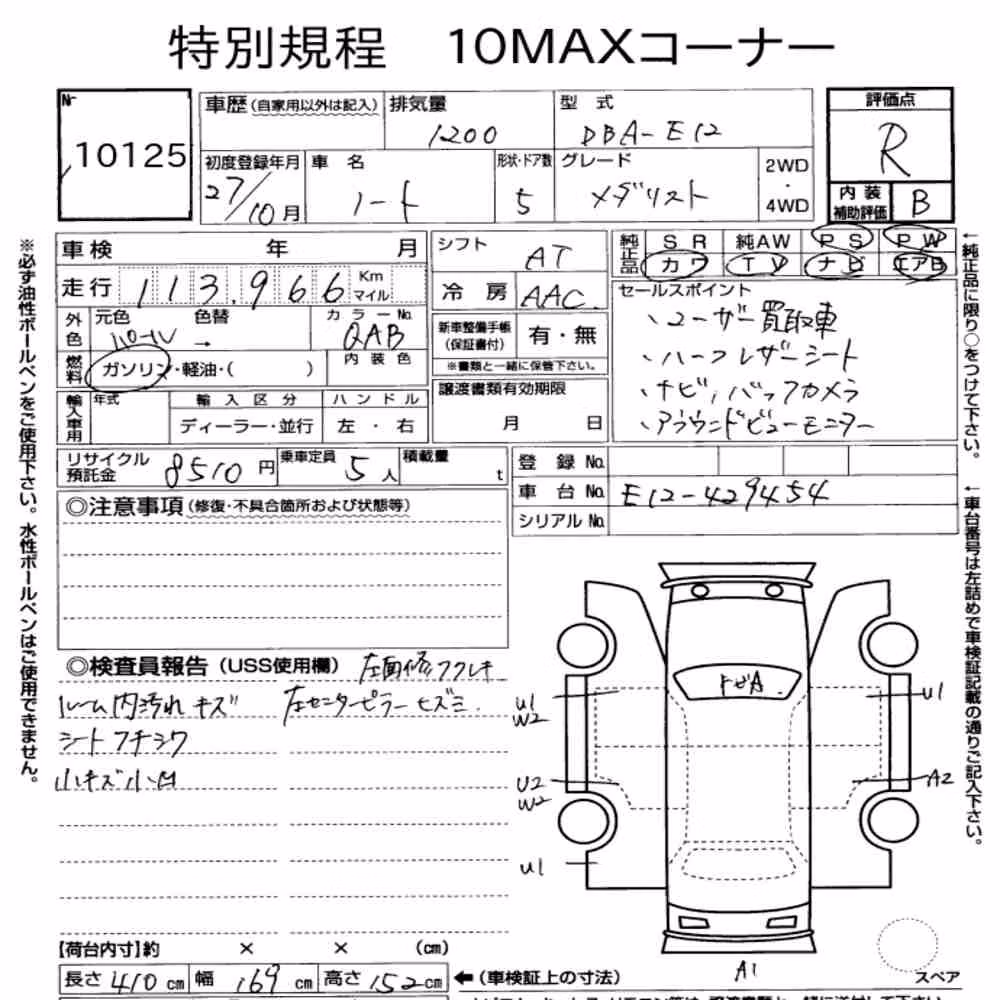 特別規程 10MAXコーナー
No. 10125
車歴(自家用以外は記入) 排気量 1200 型式 DBA-E12
初度登録年月 27/10月 車名 ノート 形状・ドア数 5 グレード メダリスト 2WD・4WD
評価点 R
内装補助評価 B
車検 年 月
走行 113,966 Km マイル
外色 元色 パール 色替 → カラーNo. QAB
燃料 ガソリン・軽油・( ) 内装色
輸入車用 年式 輸入区分 ディーラー・並行 ハンドル 左・右
シフト AT
冷房 AAC
新車整備手帳(保証書付) 有・無
※書類と一緒に保管下さい。
譲渡書類有効期限 月 日
純正品 SR 純AW PS PW
カワ TV ナビ エアB
セールスポイント
、ユーザー買取車
、ハーフレザーシート
、ナビ、バックカメラ
、アラウンドビューモニター
リサイクル預託金 8510円 乗車定員 5人 積載量 t
登録No.
車台No. E12-429454
シリアルNo.
◎注意事項(修復・不具合箇所および状態等)
◎検査員報告(USS使用欄) 左面修フクレキ
ルーム内汚れキズ 左センターピラーヒズミ.
シートフチシワ
小キズ小凹
トビA
U1
W2
U1
U2
W2
A2
U1
A1
スペア
【荷台内寸】約 × × (cm)
長さ 410cm 幅 169cm 高さ 152cm ←(車検証上の寸法)
※必ず油性ボールペンをご使用下さい。水性ボールペンはご使用できません。
←純正品に限り○をつけて下さい。
←車台番号は左詰めで車検証記載の通りご記入下さい。